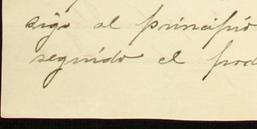 sigo al principio
seguido el prod